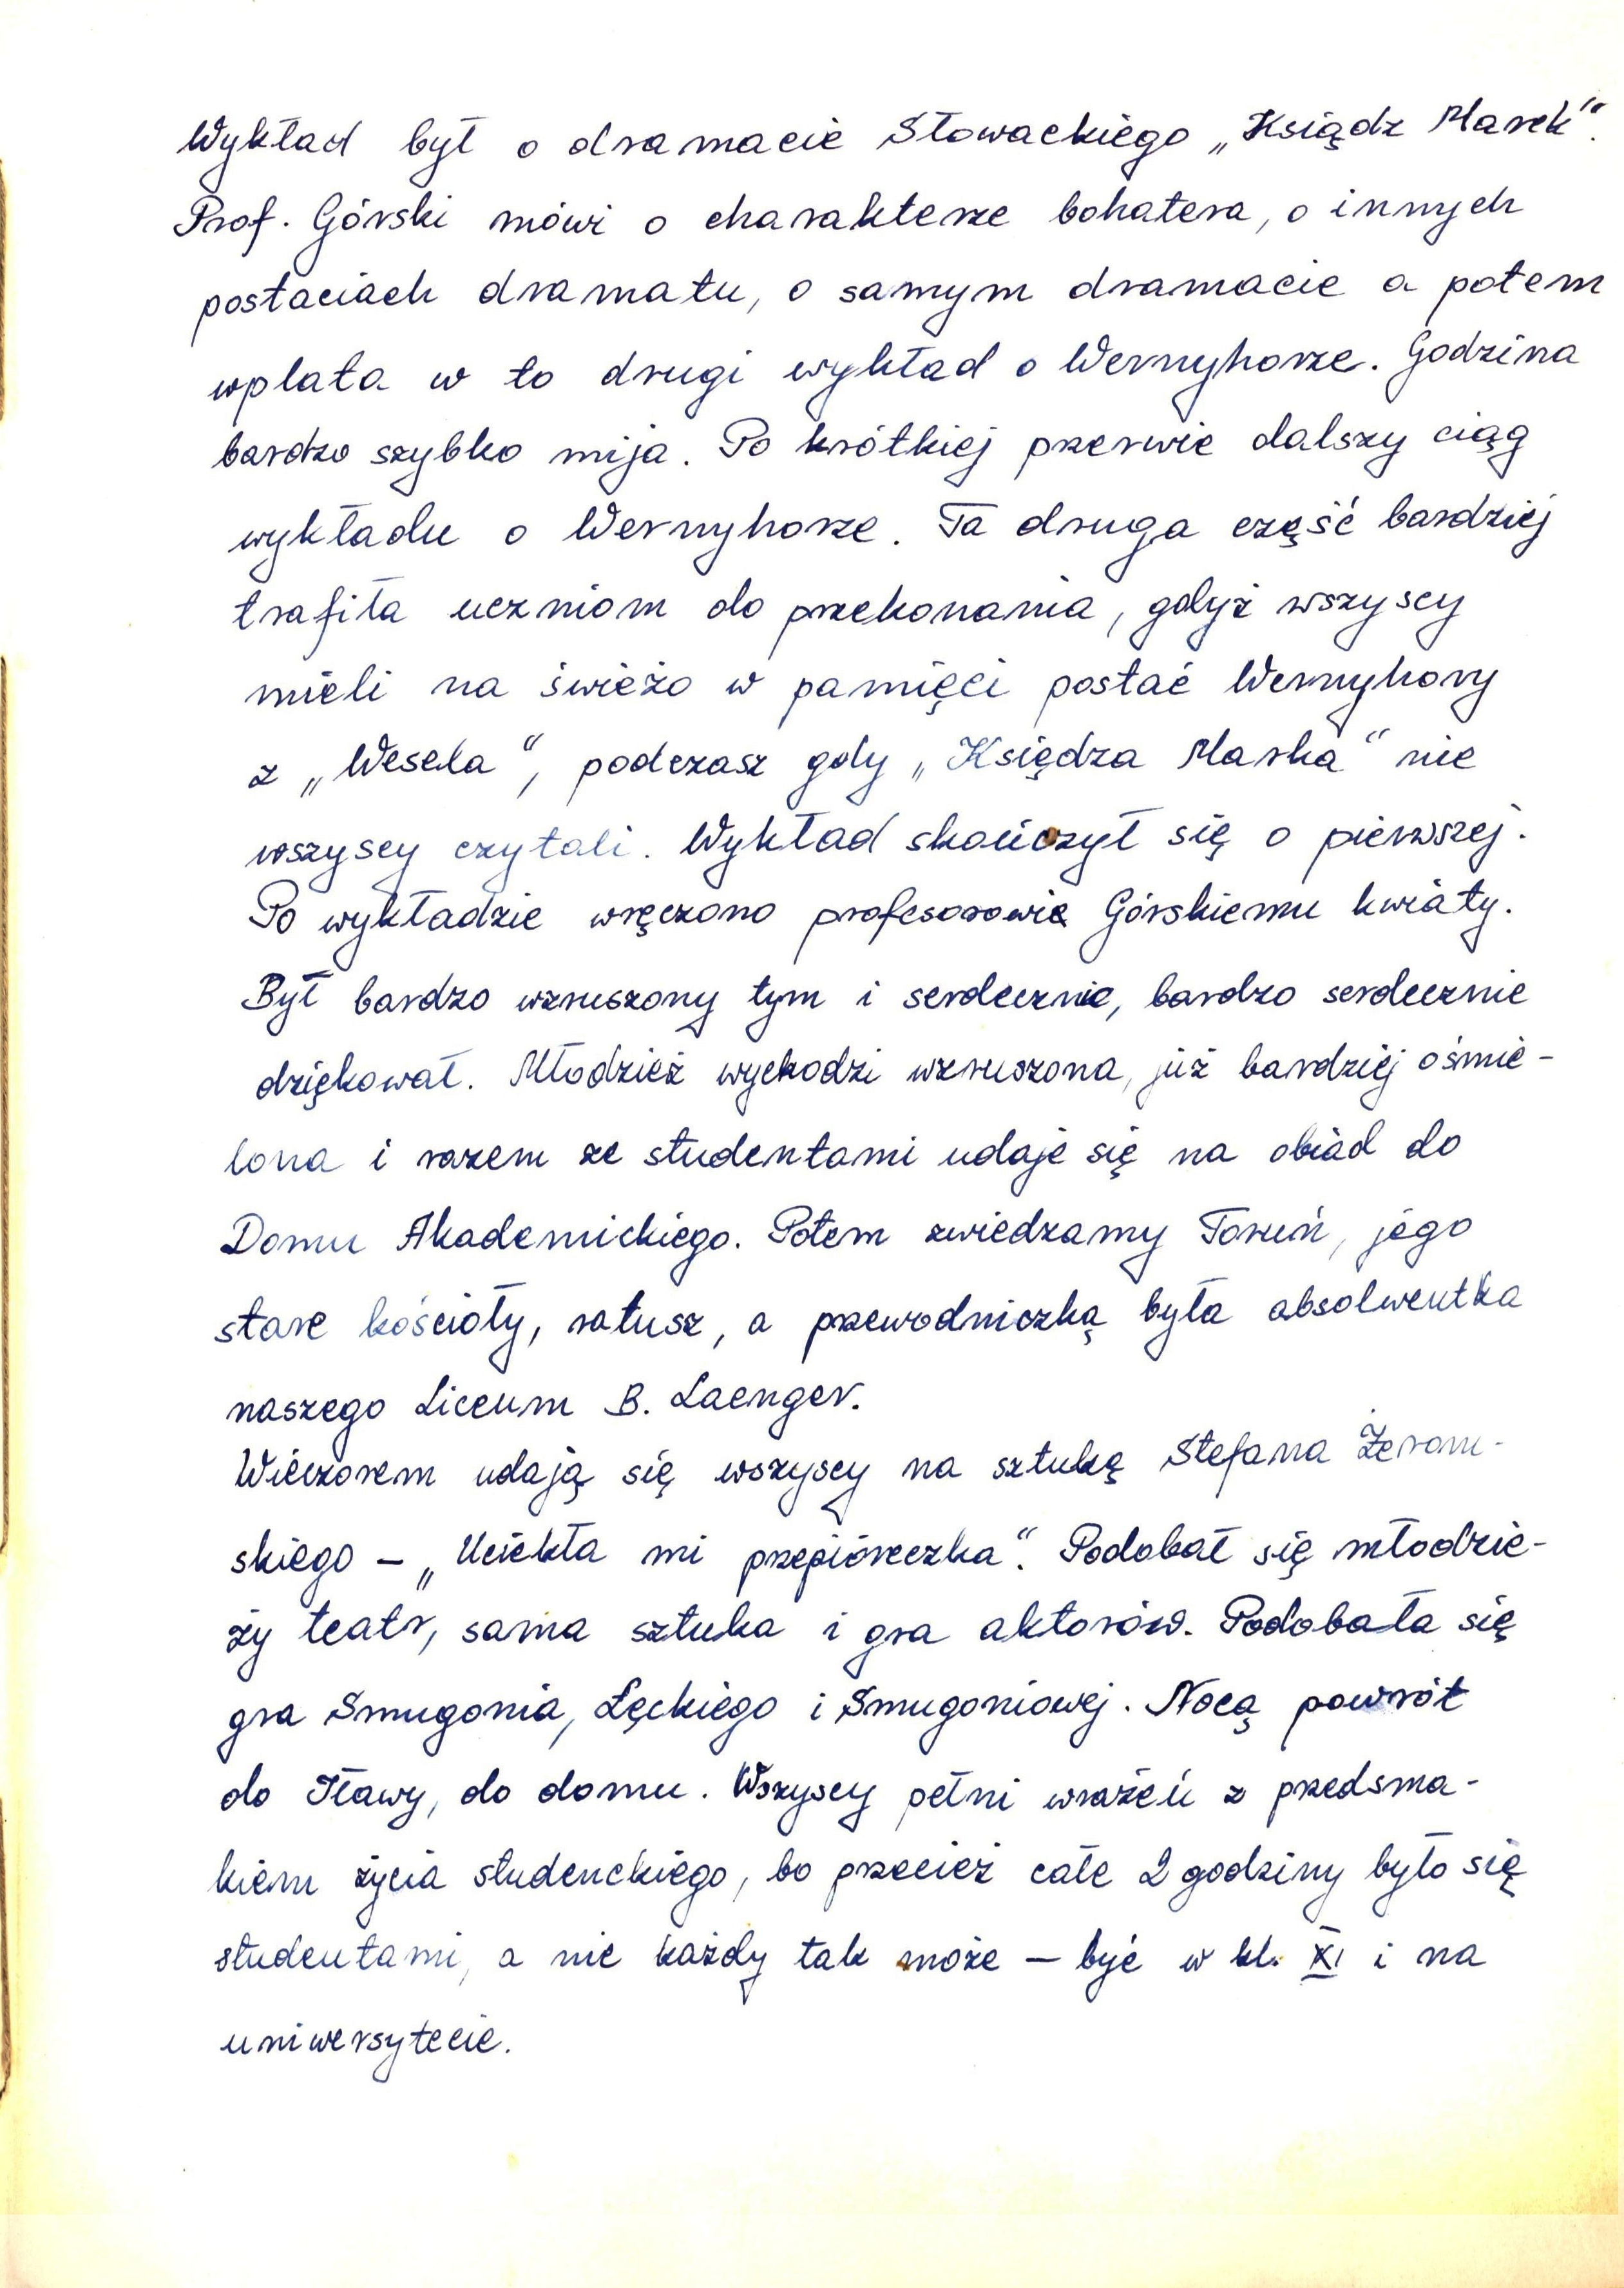 Wykład był o dramacie Słowackiego „Ksiądz Marek".
Prof. Górski mówi o charakterze bohatera, o innych
postaciach dramatu, o samym dramacie a potem
wplata w to drugi wykład o Wernyhorze. Godzina
bardzo szybko mija. Po krótkiej przerwie dalszy ciąg
wykładu o Wernyhorze. Ta druga część bardziej
trafiła uczniom do przekonania, gdyż wszyscy
mieli na świeżo w pamięci postać Wernyhory
z „Wesela", podczas gdy „Księdza Marka" nie
wszyscy czytali. Wykład skończył się o pierwszej.
Po wykładzie wręczono profesorowie Górskiemu kwiaty.
Był bardzo wzruszony tym i serdecznie, bardzo serdecznie
dziękował. Młodzież wychodzi wzruszona, już bardziej ośmie-
lona i razem ze studentami udaje się na obiad do
Domu Akademickiego. Potem zwiedzamy Toruń, jego
stare kościoły, ratusz, a przewodniczką była absolwentka
naszego Liceum B. Laenger.
Wieczorem udają się wszyscy na sztukę Stefana Żerom-
skiego – „Uciekła mi przepióreczka". Podobał się młodzie-
ży teatr, sama sztuka i gra aktorów. Podobała się
gra Smugonia, Łęckiego i Smugoniowej. Nocą powrót
do Iławy, do domu. Wszyscy pełni wrażeń z przedsma-
kiem życia studenckiego, bo przecież całe 2 godziny było się
studentami, a nie każdy tak może – być w kl. XI i na
uniwersytecie.